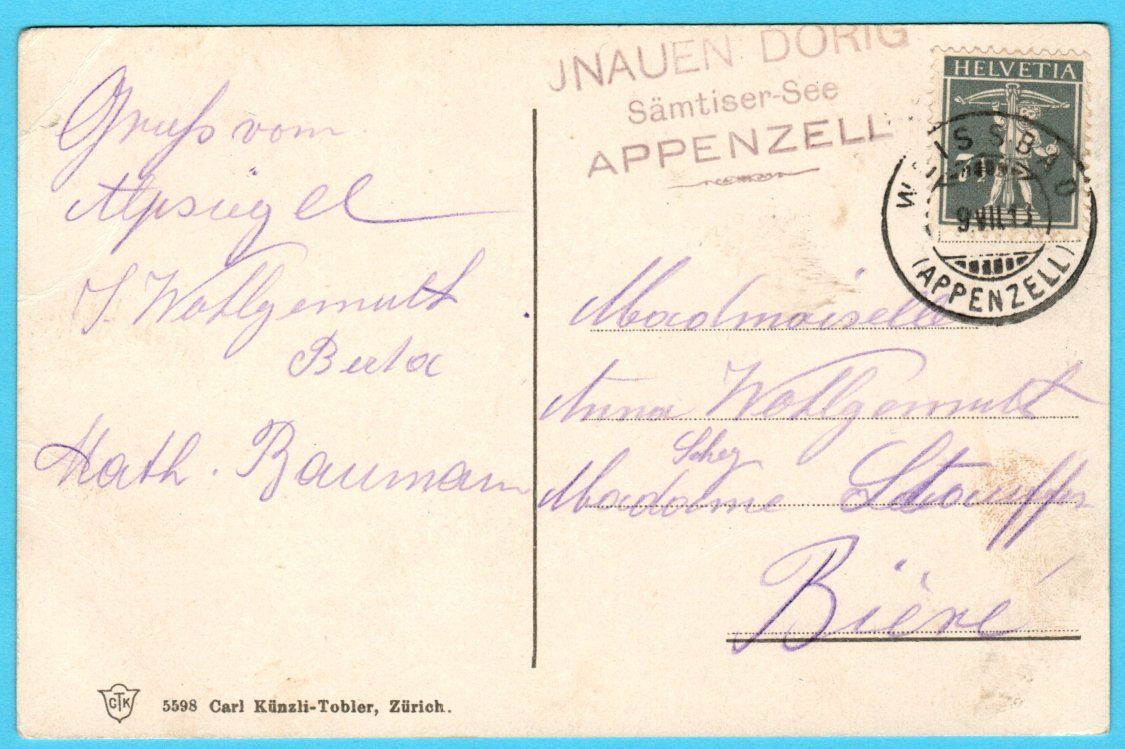 Gruß vom
Alpsiegel
J. Wohlgemuth
Berta
Math. Bauman
JNAUEN DÖRIG
Sämtiser-See
APPENZELL
HELVETIA
WEISSBAD
9.VII.1
(APPENZELL)
Madmoiselle
Anna Wohlgemuth
Chez
Madame Stauffer
Bière
CTK
5598 Carl Künzli-Tobler, Zürich.